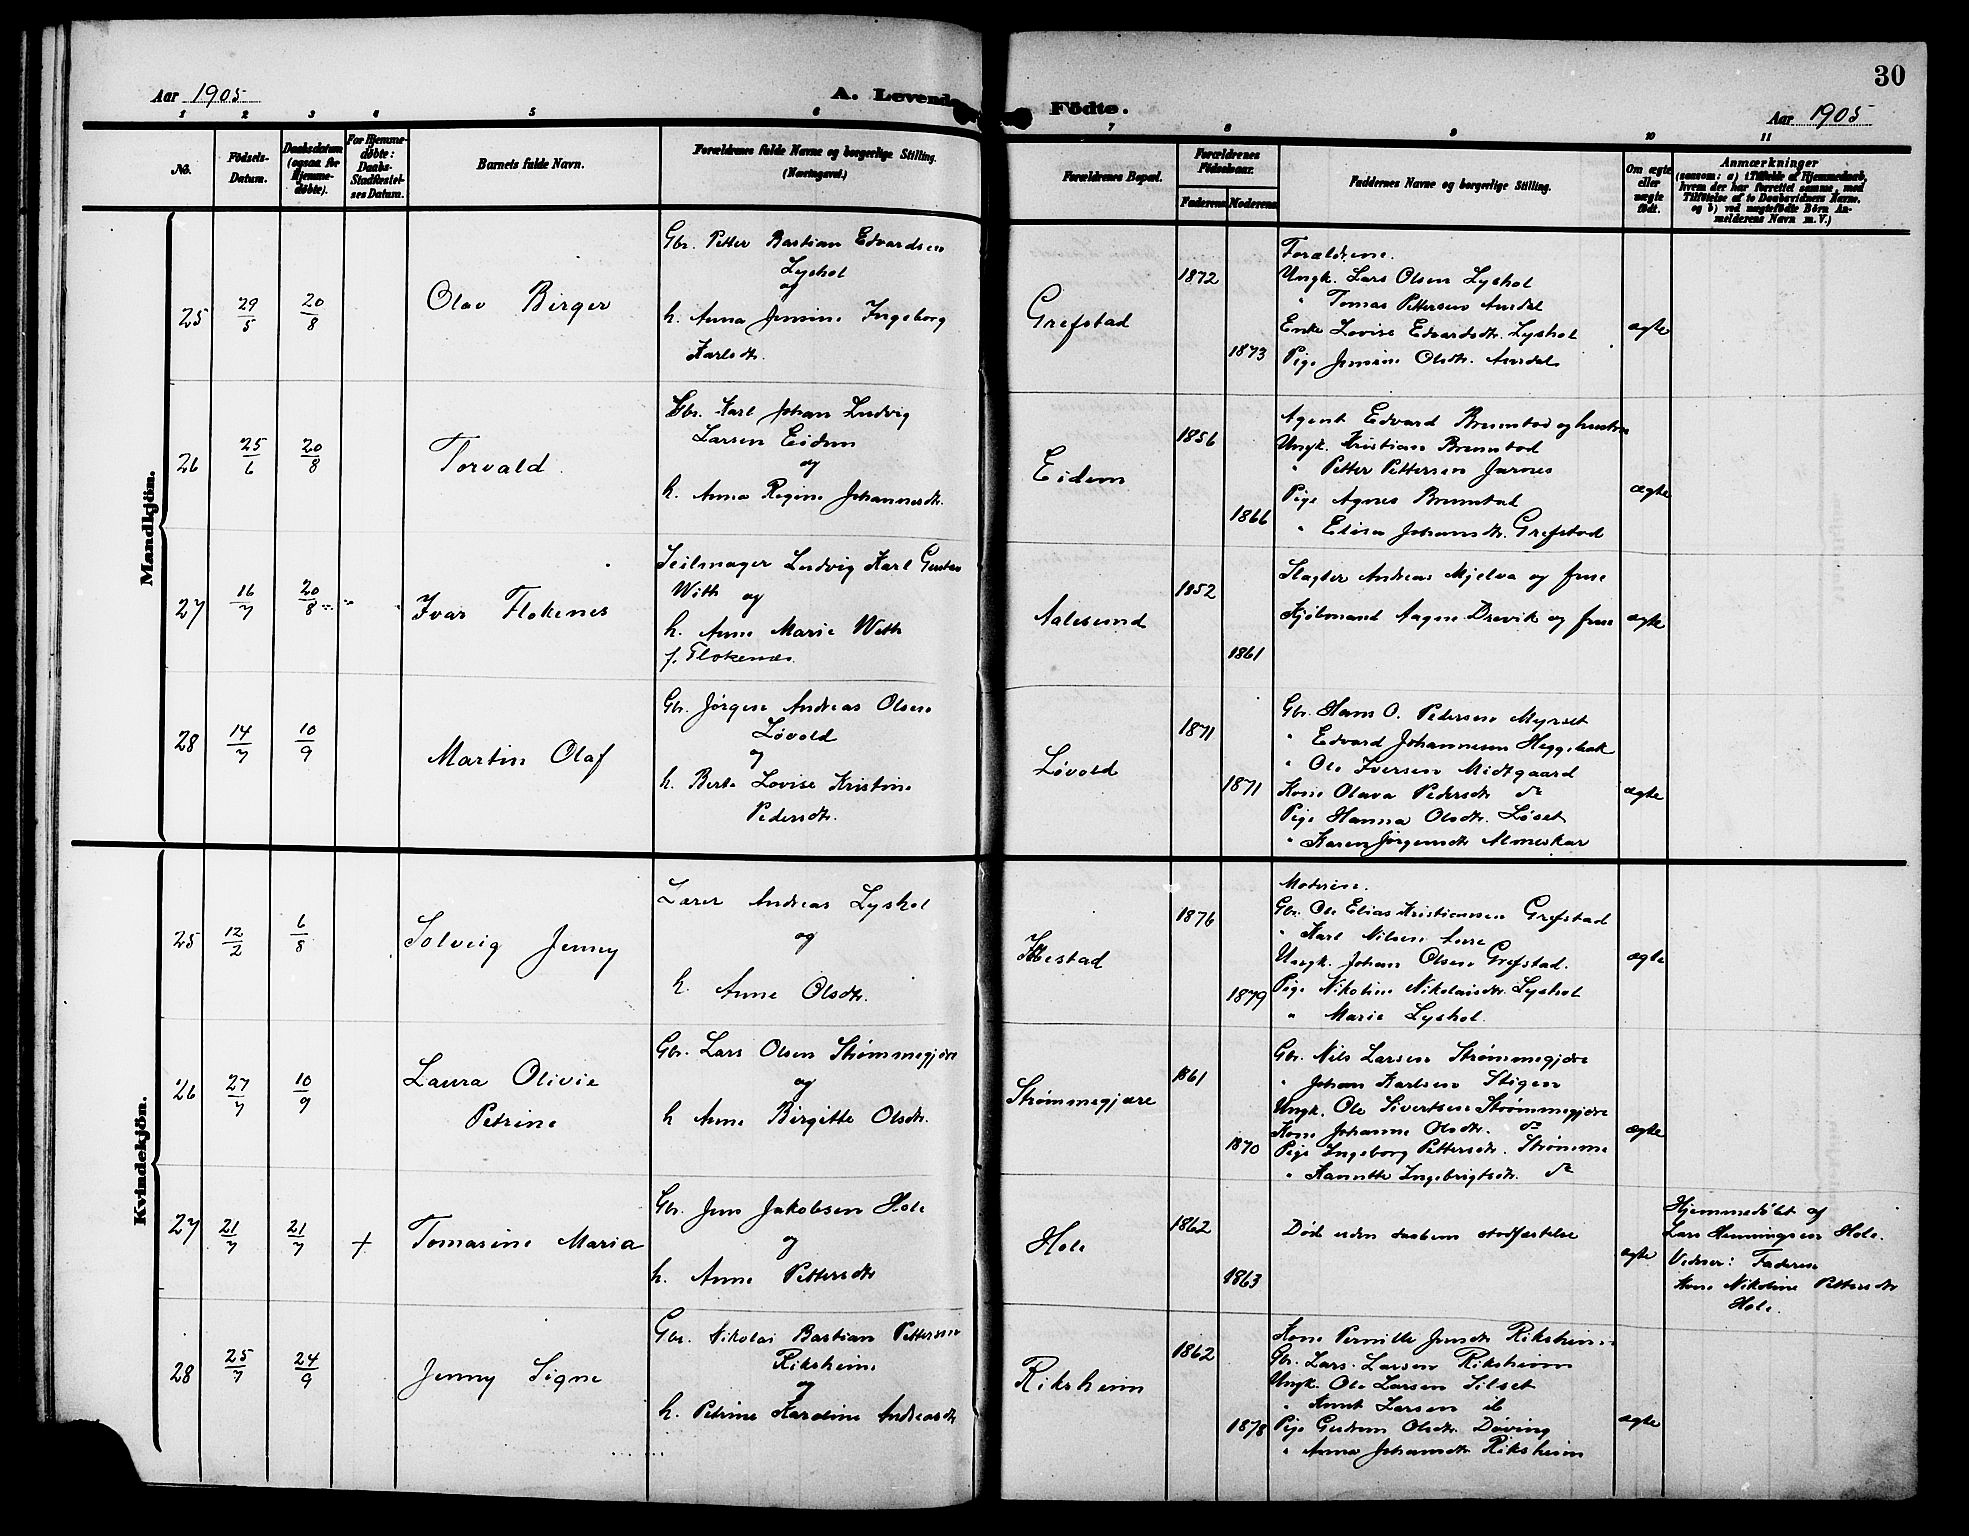 30
Aar 1905
A. Levende
Fødte.
Aar 1905
1 2 3 4 5 6
7 8 9 10 11
No.
Fødsels-
Datum.
Daabsdatum
(ogsaa for
Hjemme-
døbte).
For Hjemme-
døbte:
Daabs-
Stadfæstel-
ses Datum.
Barnets fulde Navn.
Forældrenes fulde Navne og borgerlige Stilling.
(Næringsvei.)
Forældrenes Bopæl.
Forældrenes
Fødselsaar.
Faderens
Moderens
Faddernes Navne og borgerlige Stilling.
Om ægte
eller
uægte
født.
Anmærkninger
(saasom: a) i Tilfælde af Hjemmedaab,
hvem der har forrettet samme, med
Tilføielse af to Daabsvidners Navne,
og b) ved uægtefødte Børn An-
melderens Navn m. V.)
Mandkjön.
25
29/5
20/8
Olav Birger
Gbr. Petter Bastian Edvardsen
Lyshol
og
h. Anna Jensine Ingeborg
Karlsdtr.
Grefstad
1872
1873
Forældrene.
Ungk. Lars Olsen Lyshol
" Tomas Pettersen Aursdal
Enke Lovise Edvardsdtr. Lyshol
Pige Jensine Olsdtr.
ægte
26
25/6
20/8
Torvald
Gbr. Karl Johan Ludvig
Larsen Eidem
og
h. Anna Regine Johannesdtr.
Eidem
1856
1866
Agent Edvard Brunstad og hustru
Ungk. Kristian Brunstad
" Petter Pettersen Jarnes
Pige Agnes Brunstad
" Elisa Johansdtr. Grefstad
ægte
27
16/7
20/8
Ivar Flokenes
Seilmager Ludvig Karl Gustav
With og
h. Anne Marie With
f. Flokenæs.
Aalesund
1852
1861
Slagter Andreas Mjelva og frue
Kjøbmand Aagne Drevik og frue
ægte
28
14/7
10/9
Martin Olaf
Gbr. Jørgen Andreas Olsen
Løvold
og
h. Berte Lovise Kristine
Pedersdtr.
Løvold
1871
1871
Gbr. Hans O. Pedersen Myrset
" Edvard Johannesen Heggebak
" Ole Iversen Midtgaard
Kone Olava Pedersdtr do
Pige Hanna Olsdtr. Løset
" Karen Jørgensdtr Almeskar
ægte
Kvindekjön.
25
12/2
6/8
Solveig Jenny
Lærer Andreas Lyshol
og
h. Anne Olsdtr.
Ibestad
1876
1879
Moderen.
Gbr. Ole Elias Kristiansen Grefstad
" Karl Nilsen Aure
Ungk. Johan Olsen Grefstad.
Pige Nikoline Nikolaisdtr. Lyshol
" Marie Lyshol.
ægte
26
27/7
10/9
Laura Olivie
Petrine
Gbr. Lars Olsen Strømmegjære
og
h Anne Birgitte Olsdtr.
Strømmegjære
1861
1870
Gbr. Nils Larsen Strømmegjære
" Johan Karlsen Stigen
Ungk. Ole Sivertsen Strømmegjære
Kone Johanne Olsdtr. do
Pige Ingeborg Pettersdtr. Strømme
" Hannette Ingebrigtsdtr. do
ægte
27
21/7
21/7
+
Tomasine Maria
Gbr. Jens Jakobsen Hole
og
h. Anne Pettersdtr
Hole
1862
1863
Død uden daabens stadfæstelse
ægte
Hjemmedøbt af
Lars Henningsen Hole.
Vidner: Faderen
Kone Nikoline Pettersdtr
Hole.
28
25/7
24/9
Jenny Signe
Gbr. Nikolai Bastian Pettersen
Riksheim
og
h. Petrine Karoline Andreasdtr
Riksheim
1862
1878
Kone Pernille Jensdtr Riksheim
Gbr. Lars Larsen Riksheim
Ungk. Ole Larsen Silset
" Knut Larsen ib
Pige Gurine Olsdtr. Døving
" Anna Johansdtr Riksheim
ægte